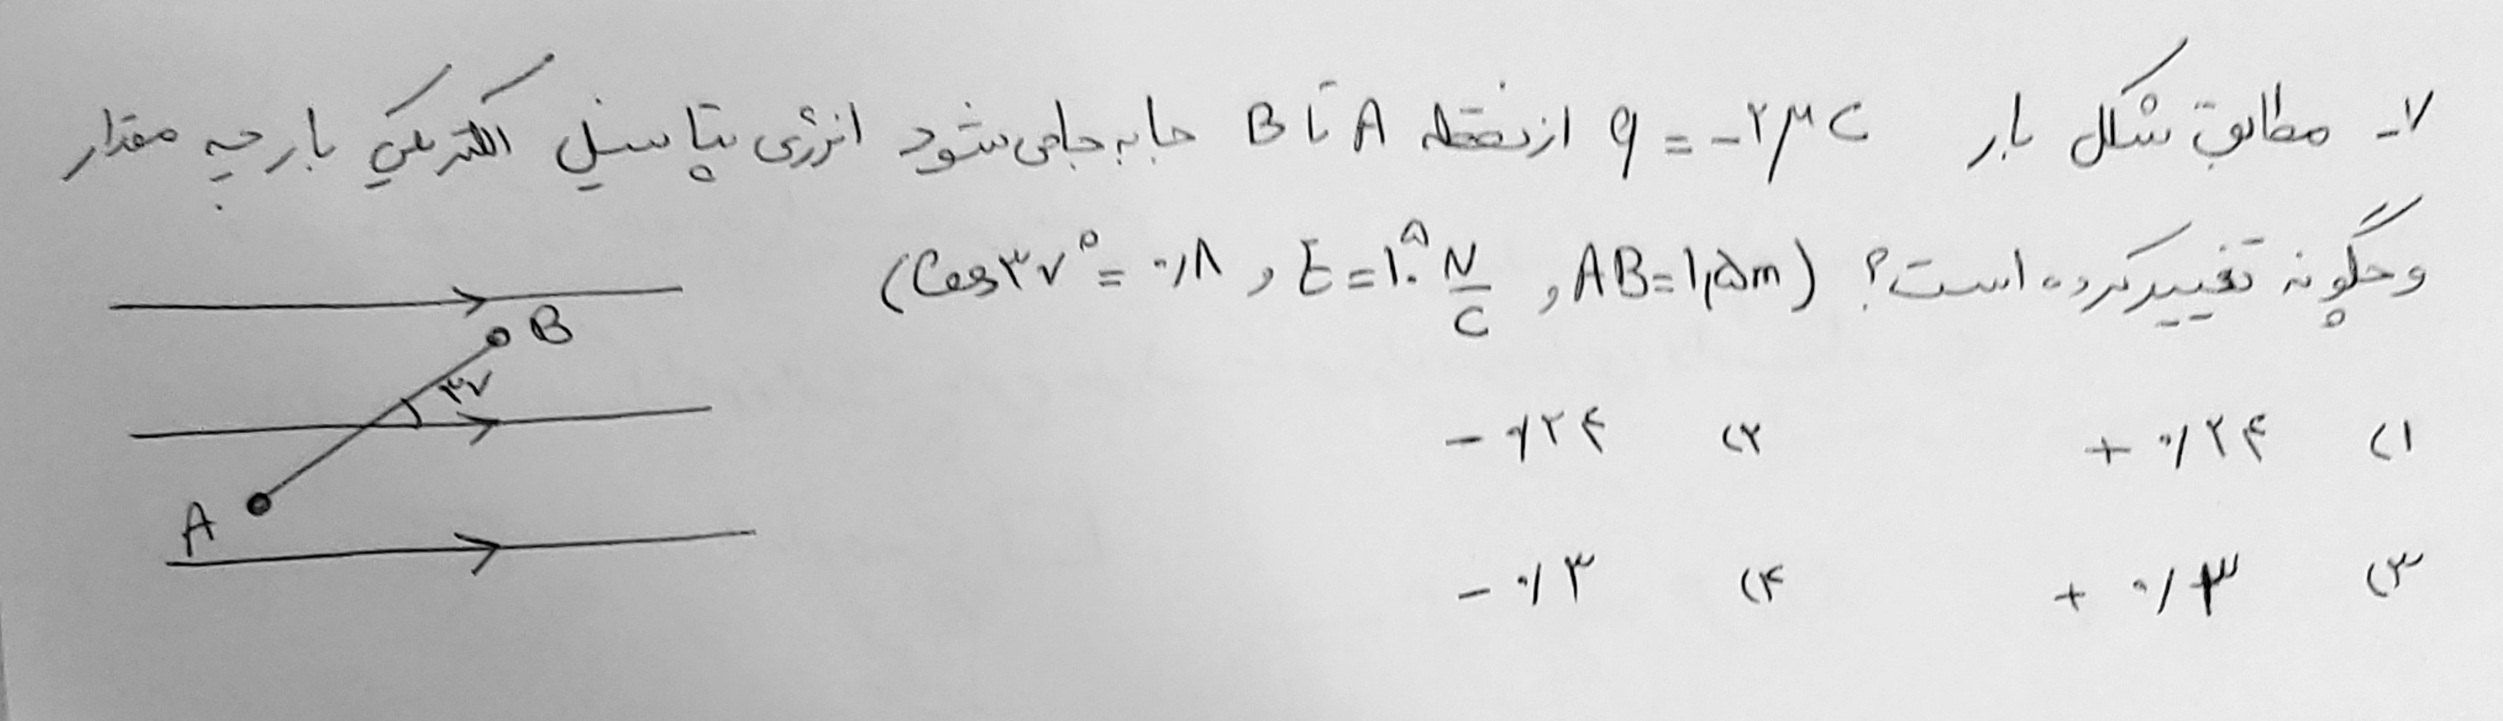 ۷- مطابق شکل بار q = -۲μC از نقطه A تا B جابه جا می شود انرژی پتانسیل الکتریکی بار چه مقدار
و چگونه تغییر کرده است؟ (AB=۱٫۵m , E=۱۰^۵ N/C , Cos۳۷°=۰٫۸)
B
۳۷
A
۱) +۰٫۲۴ ۲) -۰٫۲۴
۳) +۰٫۳ ۴) -۰٫۳